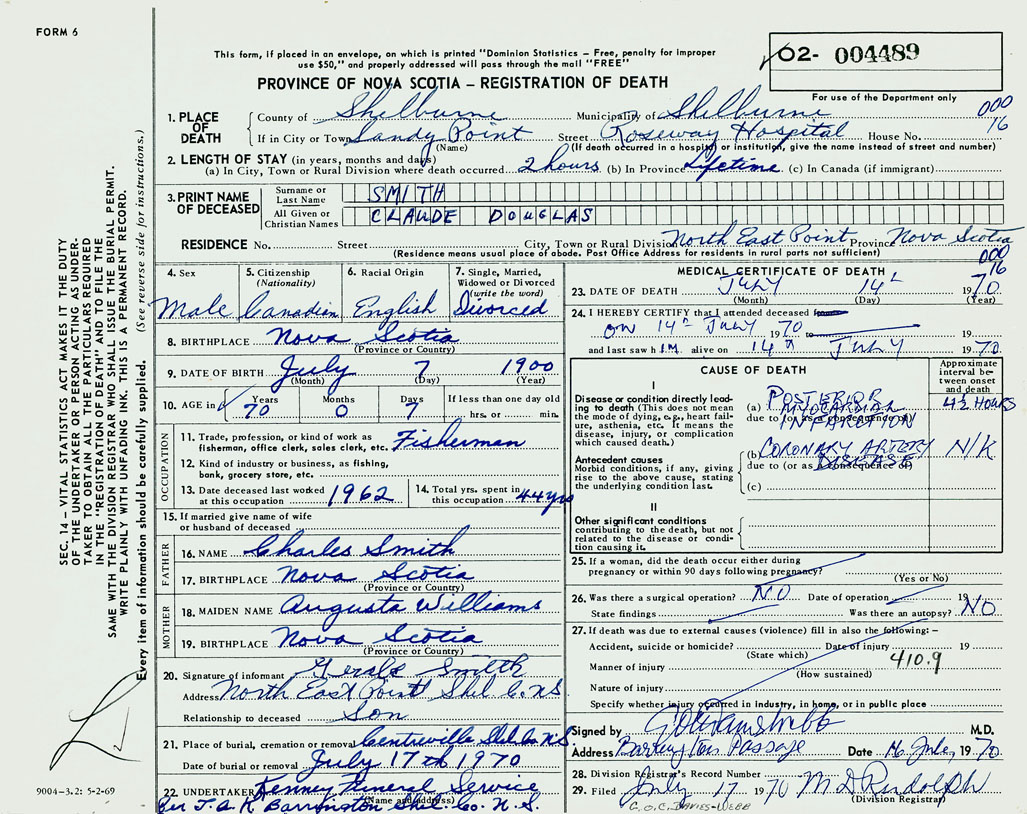 FORM 6
This form, if placed in an envelope, on which is printed "Dominion Statistics – Free, penalty for improper
use $50," and properly addressed will pass through the mail "FREE"
PROVINCE OF NOVA SCOTIA – REGISTRATION OF DEATH
02- 004489
For use of the Department only
000
16
1. PLACE OF DEATH County of Shelburne Municipality of Shelburne
If in City or Town Sandy Point (Name) Street Roseway Hospital House No.
(If death occurred in a hospital or institution, give the name instead of street and number)
2. LENGTH OF STAY (in years, months and days)
(a) In City, Town or Rural Division where death occurred 2 hours (b) In Province Lifetime (c) In Canada (if immigrant)
3. PRINT NAME OF DECEASED Surname or Last Name SMITH
All Given or Christian Names CLAUDE DOUGLAS
RESIDENCE No. Street City, Town or Rural Division North East Point Province Nova Scotia
(Residence means usual place of abode. Post Office Address for residents in rural parts not sufficient)
000
16
4. Sex Male
5. Citizenship (Nationality) Canadian
6. Racial Origin English
7. Single, Married, Widowed or Divorced (write the word) Divorced
8. BIRTHPLACE Nova Scotia
(Province or Country)
9. DATE OF BIRTH July 7 1900
(Month) (Day) (Year)
10. AGE in Years 70 Months 0 Days 7 If less than one day old hrs. or min.
OCCUPATION
11. Trade, profession, or kind of work as
fisherman, office clerk, sales clerk, etc. Fisherman
12. Kind of industry or business, as fishing,
bank, grocery store, etc.
13. Date deceased last worked at this occupation 1962
14. Total yrs. spent in this occupation 44 yrs
15. If married give name of wife
or husband of deceased
FATHER
16. NAME Charles Smith
17. BIRTHPLACE Nova Scotia
(Province or Country)
MOTHER
18. MAIDEN NAME Augusta Williams
19. BIRTHPLACE Nova Scotia
(Province or Country)
20. Signature of informant Gerald Smith
Address North East Point Shel Co. NS
Relationship to deceased Son
21. Place of burial, cremation or removal Centreville Shel Co N S
Date of burial or removal July 17th 1970
22. UNDERTAKER Kenney Funeral Service
(Name and address)
Per J. A. K. Barrington Shel. Co. N. S.
MEDICAL CERTIFICATE OF DEATH
23. DATE OF DEATH July 14th 1970
(Month) (Day) (Year)
24. I HEREBY CERTIFY that I attended deceased
on 14th July 1970 to 19
and last saw h im alive on 14th July 1970
CAUSE OF DEATH
Approximate interval between onset and death
I
Disease or condition directly leading to death (This does not mean the mode of dying, e.g., heart failure, asthenia, etc. It means the disease, injury, or complication which caused death.)
(a) POSTERIOR MYOCARDIAL INFARCTION 4½ HOURS
due to (or as a consequence of)
Antecedent causes
Morbid conditions, if any, giving rise to the above cause, stating the underlying condition last.
(b) CORONARY ARTERY DISEASE N/K
due to (or as a consequence of)
(c)
II
Other significant conditions
contributing to the death, but not related to the disease or condition causing it.
25. If a woman, did the death occur either during
pregnancy or within 90 days following pregnancy?
(Yes or No)
26. Was there a surgical operation? NO Date of operation 19
State findings Was there an autopsy? NO
27. If death was due to external causes (violence) fill in also the following: –
Accident, suicide or homicide? Date of injury 19
(State which)
410.9
Manner of injury
(How sustained)
Nature of injury
Specify whether injury occurred in industry, in home, or in public place
Signed by M.D.
Address Barrington Passage Date 16 July, 1970
28. Division Registrar's Record Number
29. Filed July 17 1970 M D Rudolph
(Division Registrar)
G.O.C. DAVIES-WEBB
SEC. 14 – VITAL STATISTICS ACT MAKES IT THE DUTY
OF THE UNDERTAKER OR PERSON ACTING AS UNDER-
TAKER TO OBTAIN ALL THE PARTICULARS REQUIRED
IN THE "REGISTRATION OF DEATH" AND TO FILE THE
SAME WITH THE DIVISION REGISTRAR WHO SHALL ISSUE THE BURIAL PERMIT.
WRITE PLAINLY WITH UNFADING INK. THIS IS A PERMANENT RECORD.
Every item of information should be carefully supplied. (See reverse side for instructions.)
9004-3.2: 5-2-69